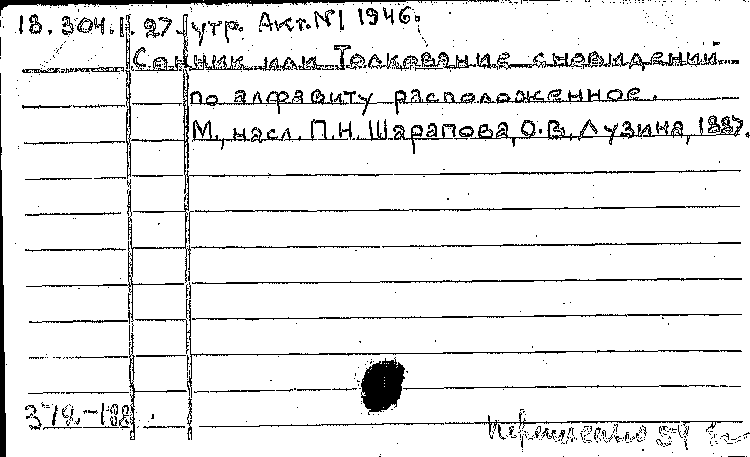 18.304.II.27. утр. Акт. №1 1946.
Сонник или Толкование сновидений
по алфавиту расположенное.
М., насл. П.Н. Шарапова, О.В. Лузина, 1887.
372-188
Переписано 59